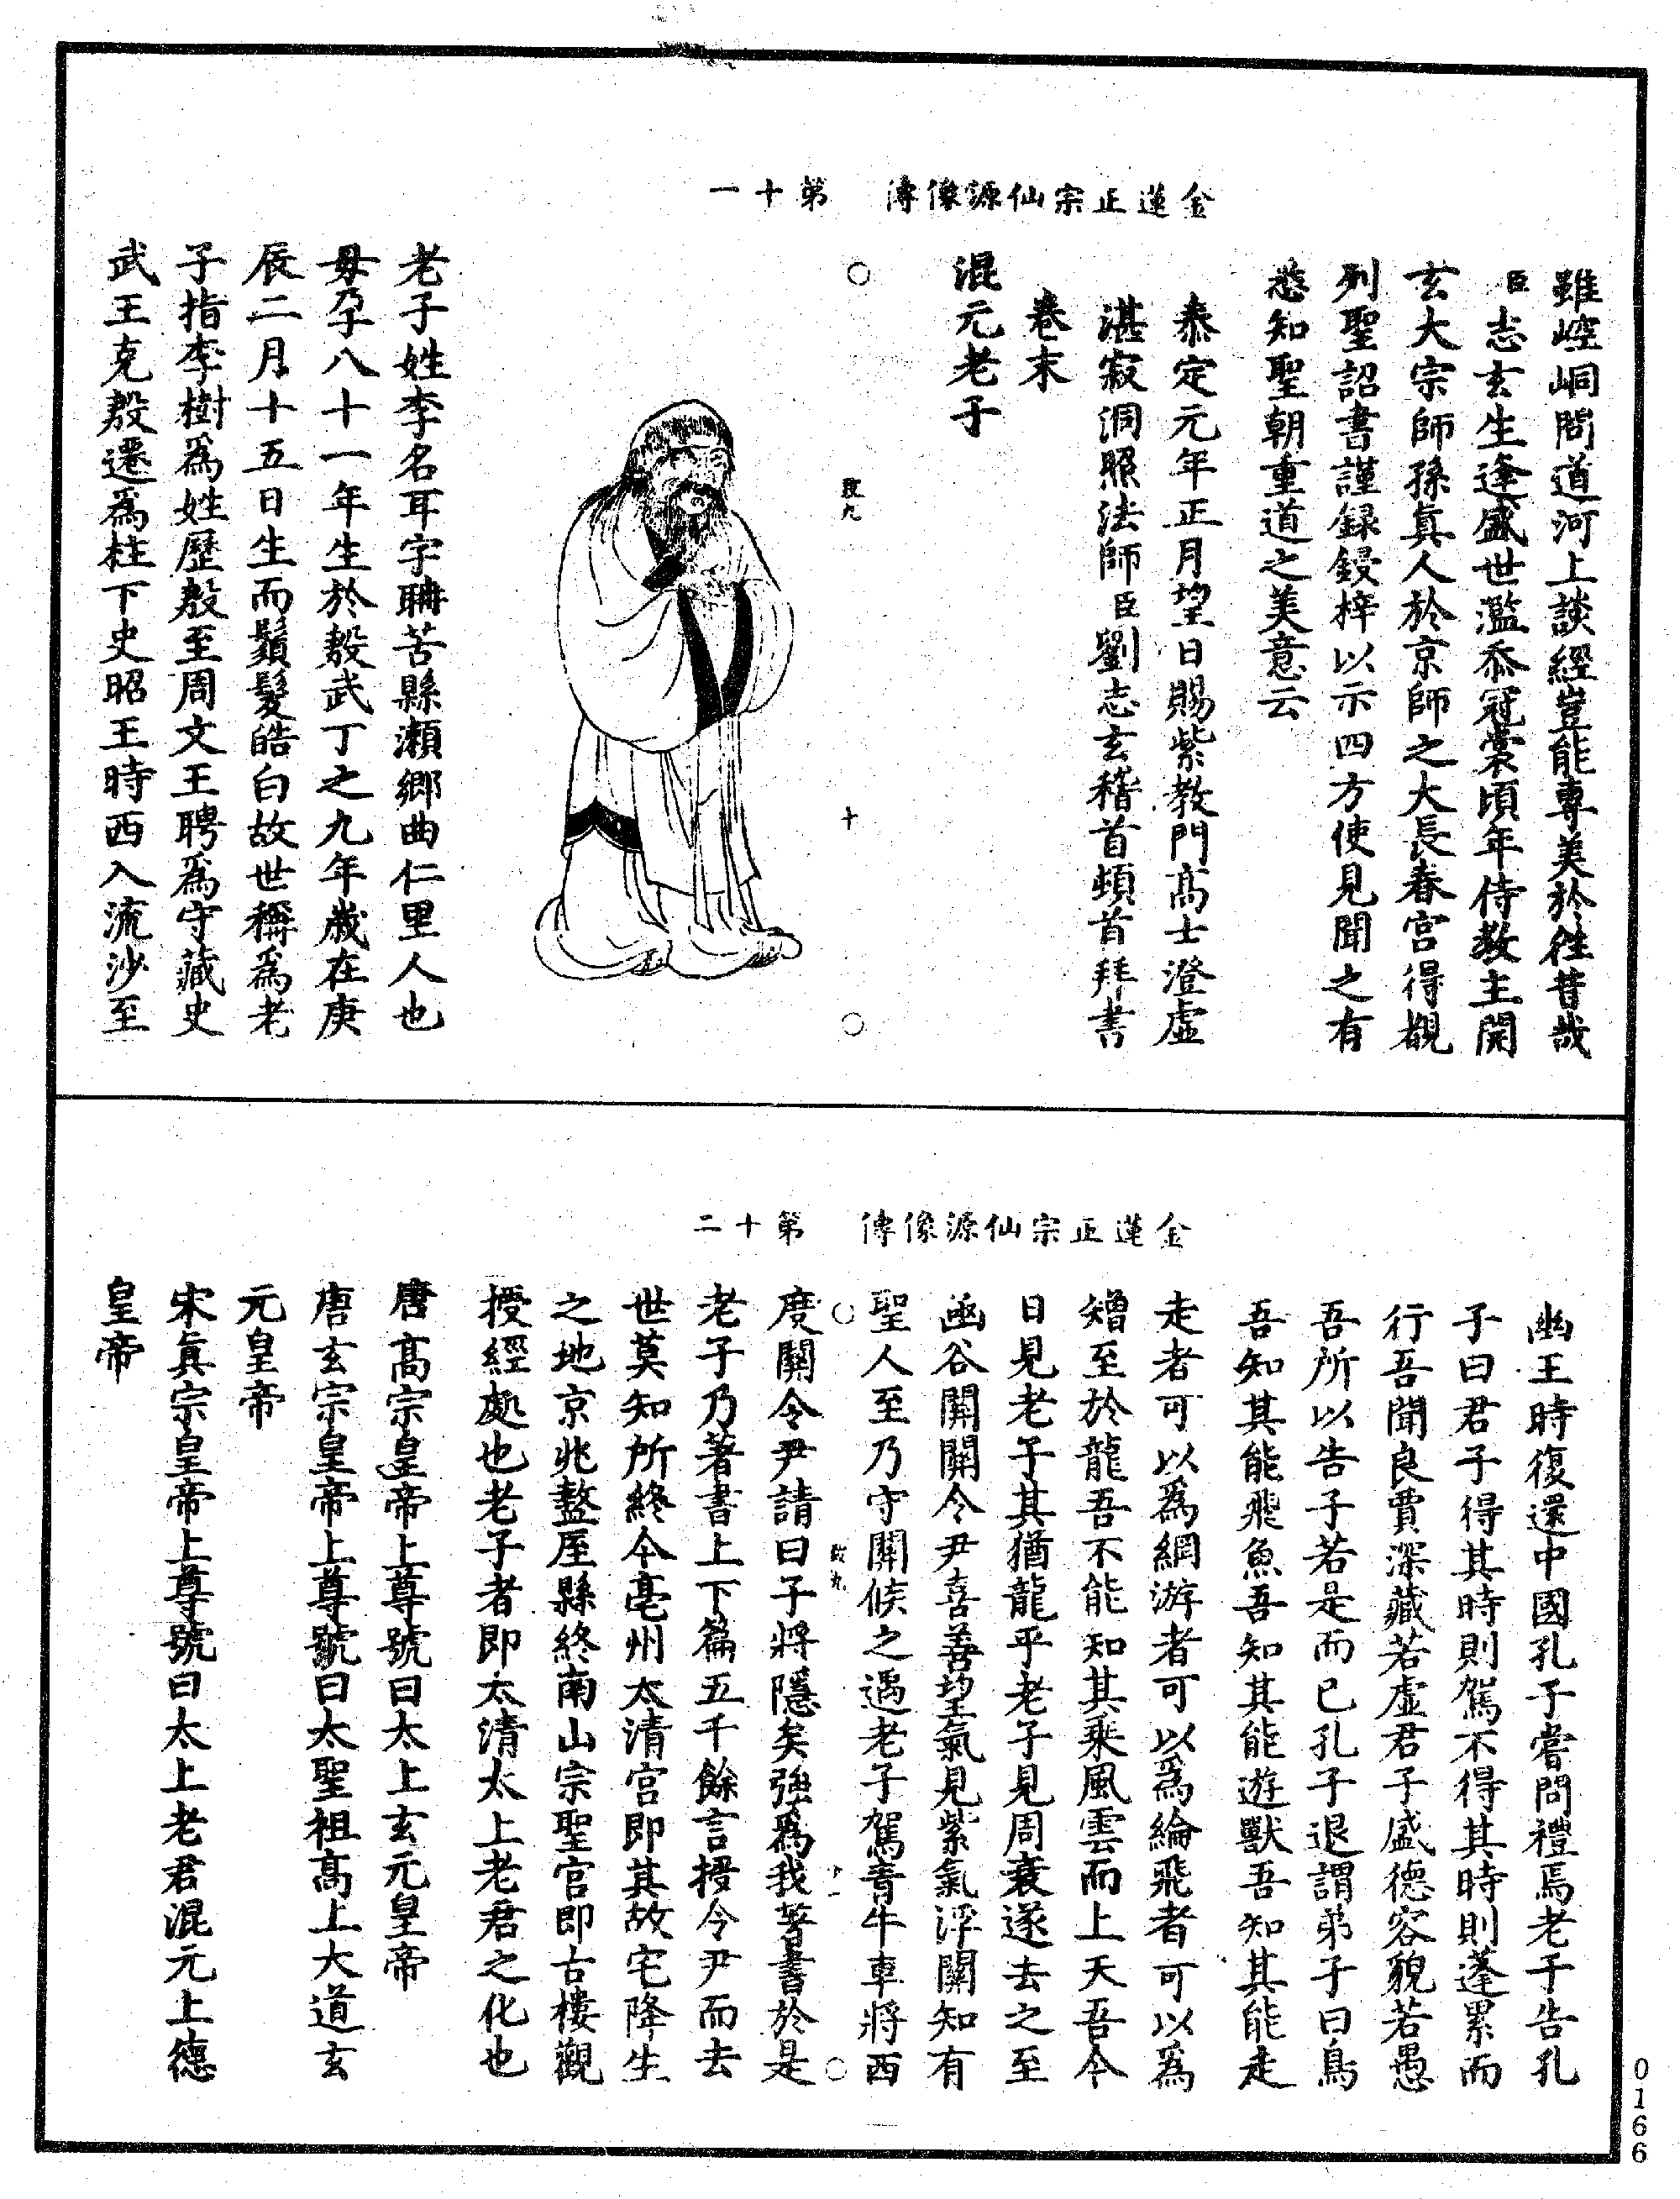 金蓮正宗仙源像傳　第十一
雖崆峒問道河上談經豈能專美於徃昔哉
臣志玄生逢盛世濫忝冠裳頃年侍教主開
玄大宗師孫眞人於京師之大長春宮得覩
列聖詔書謹録鋟梓以示四方使見聞之有
悉知聖朝重道之美意云
泰定元年正月望日賜紫教門高士澄虛
湛寂洞照法師臣劉志玄稽首頓首拜書
卷末
混元老子
致九
十
老子姓李名耳字聃苦縣瀨鄉曲仁里人也
母孕八十一年生於殷武丁之九年歲在庚
辰二月十五日生而鬚髮皓白故世稱爲老
子指李樹爲姓歷殷至周文王聘爲守藏史
武王克殷遷爲柱下史昭王時西入流沙至
金蓮正宗仙源像傳　第十二
幽王時復還中國孔子嘗問禮焉老子告孔
子曰君子得其時則駕不得其時則蓬累而
行吾聞良賈深藏若虛君子盛德容貌若愚
吾所以告子若是而已孔子退謂弟子曰鳥
吾知其能飛魚吾知其能遊獸吾知其能走
走者可以爲網游者可以爲綸飛者可以爲
矰至於龍吾不能知其乘風雲而上天吾今
日見老子其猶龍乎老子見周衰遂去之至
函谷關關令尹喜善望氣見紫氣浮關知有
聖人至乃守關候之遇老子駕青牛車將西
致九
十一
度關令尹請曰子將隱矣強爲我著書於是
老子乃著書上下篇五千餘言授令尹而去
世莫知所終今亳州太清宮即其故宅降生
之地京兆盩厔縣終南山宗聖宮即古樓觀
授經處也老子者即太清太上老君之化也
唐高宗皇帝上尊號曰太上玄元皇帝
唐玄宗皇帝上尊號曰太聖祖高上大道玄
元皇帝
宋眞宗皇帝上尊號曰太上老君混元上德
皇帝
0166